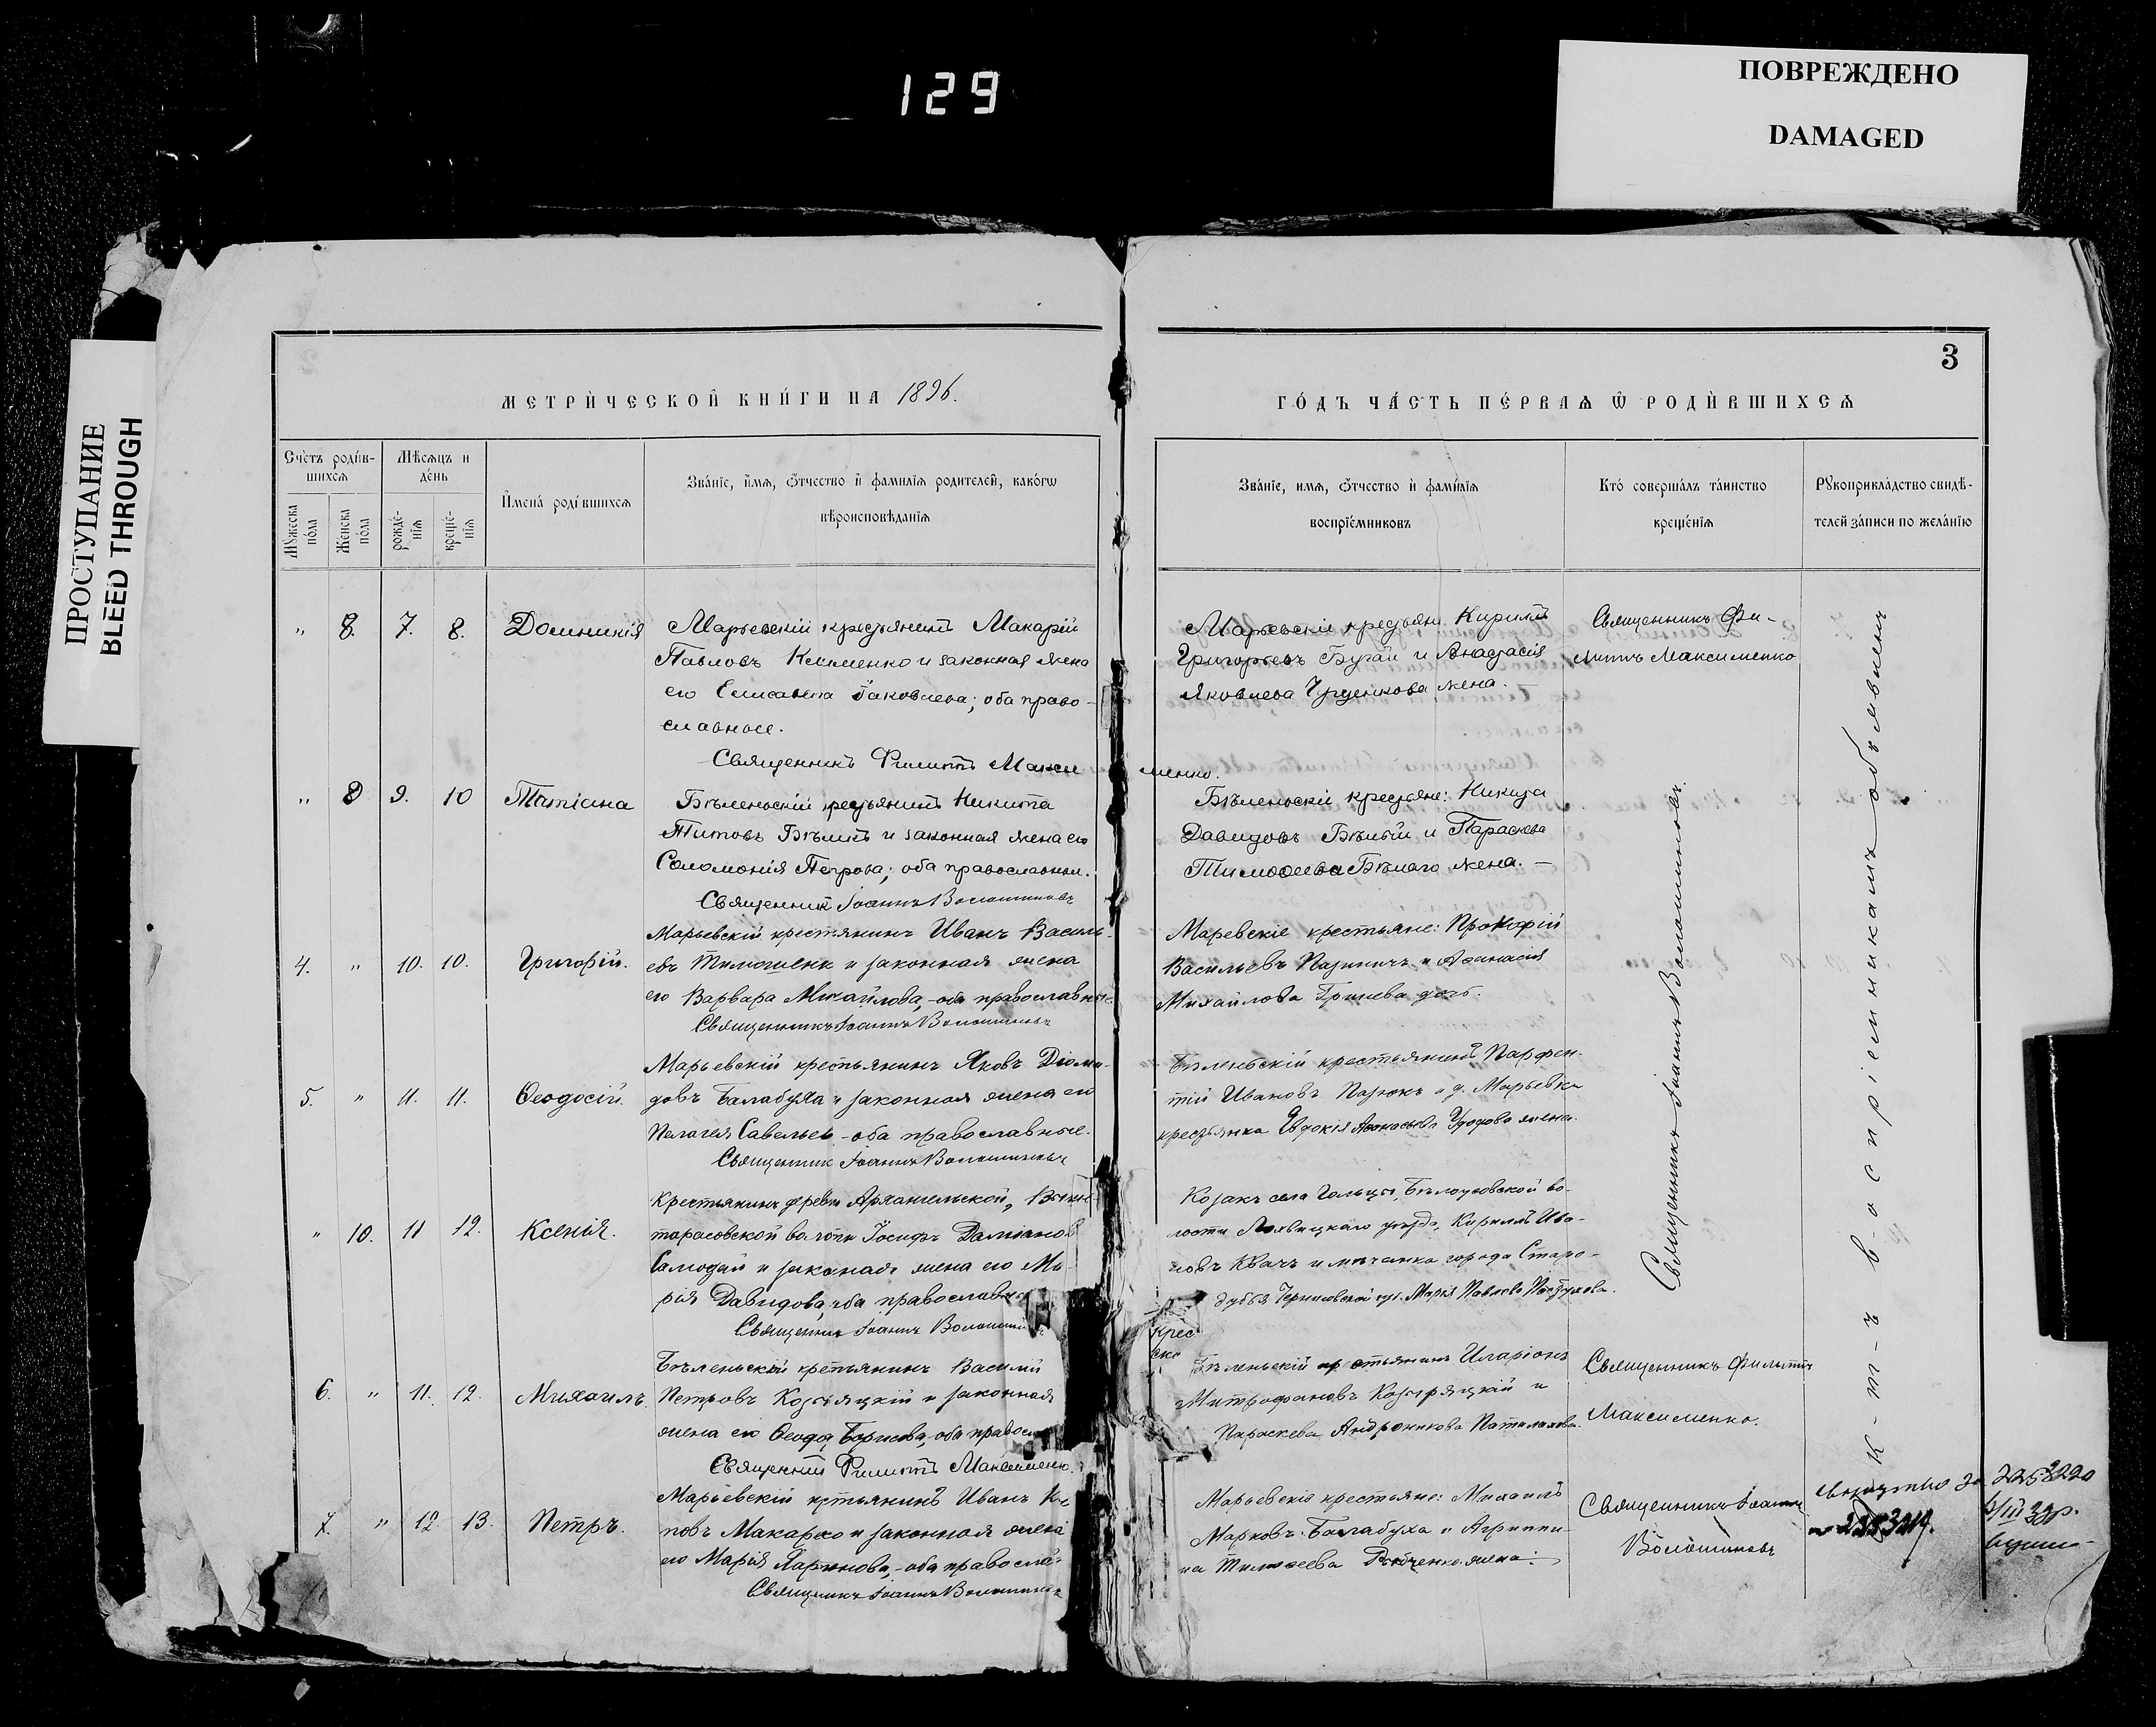 129
ПОВРЕЖДЕНО
DAMAGED
ПРОСТУПАНИЕ
BLEED THROUGH
3
МЕТРИ́ЧЕСКОЙ КНИ́ГИ НА 1896.
ГО́ДЪ ЧА́СТЬ ПЕ́РВАѦ Ѿ РОДИ́ВШИХСѦ
Счетъ роди́в-
шихсѧ
Мѣсѧцъ и
де́нь
Мꙋжеска
по́ла
Же́нска
по́ла
рожде́-
нїѧ
креще́-
нїѧ
И҆мена̀ роди́вшихсѧ
Зва́нїе, и҆́мѧ, ѻ҆́тчество и҆ фами́лїѧ родителей, како́гѡ
вѣроисповѣ́данїѧ
Зва́нїе, имѧ, ѻ҆́тчество и҆ фами́лїѧ
воспрїе́мниковъ
Кто́ соверша́лъ та́инство
креще́нїѧ
Рꙋкоприкла́дство свидѣ́-
телей за́писи по жела́нїю
" 8. 7. 8. Домникія
Марьевскій крестьянинъ Макарій
Павловъ Клименко и законная жена
его Елисавета Іаковлева; оба право-
славные.
Священникъ Филиппъ Макси
менко.
Марьевскіе крестьяне Кириллъ
Григорьевъ Бугай и Анастасія
Яковлева жена.
Священникъ Фи-
липпъ Максименко
" 8 9. 10 Татіана
Бѣленьскій крестьянинъ Никита
Титовъ Бѣлый и законная жена его
Соломонія Петрова; оба православные.
Священникъ Іоаннъ Волошиновъ
Бѣленьскіе крестьяне: Никита
Давидовъ Бѣлый и Параскева
Тимоѳеева Бѣлаго жена. —
4. " 10. 10. Григорій.
Марьевскій крестьянинъ Иванъ Василь-
евъ и законная жена
его Варвара Михайлова, - оба православные.
Священникъ Іоаннъ Волошиновъ
Маревскіе крестьяне: Прокофій
Васильевъ и Аѳанасія
Михайлова Гринева дочь.
5. " 11. 11. Ѳеодосій.
Марьевскій крестьянинъ Яковъ Діоми-
довъ Балабуха и законная жена его
Пелагея Савельев - оба православные.
Священник Іоаннъ Волошиновъ
Бѣленьскій крестьянинъ Парфен-
тій Ивановъ и д. Марьевки
крестьянка Евдокія Аѳанасьева жена.
" 10. 11 12. Ксенія.
Крестьянинъ деревни Архангельской,
тарасовской волости Іосифъ Даміанов
Самодай и законная жена его Ма-
рія Давидова, оба православные
Священник Іоаннъ Волошиновъ
Козакъ села Гольцы, Бѣлоусовской во-
лости уѣзда, Кириллъ Ива-
новъ Квачъ и мѣщанка города Старо-
дубья Черниговской губ. Марія Павлова
Крес
ско
6. " 11. 12. Михаилъ.
Бѣленьскій крестьянинъ Василій
Петровъ и законная
жена его Ѳеодо Борисова, оба правосл
Священникъ Филиппъ Максименко.
Бѣленьскій крестьянинъ Иларіонъ
Митрофановъ и
Параскева Андроникова
Священникъ Филиппъ
Максименко.
7. " 12. 13. Петръ.
Марьевскій кртьянинъ Иванъ
повъ Макарко и законная жена
его Марія оба правосла-
Священникъ Іоаннъ Волошиновъ
Марьевскіе крестьяне: Михаилъ
Марковъ Балабуха и Агриппи-
на Тимоѳеева жена.
Священникъ Іоаннъ
Волошиновъ
Священникъ Іоаннъ Волошиновъ.
К-т-ъ в-оспріемникамъ объявленъ